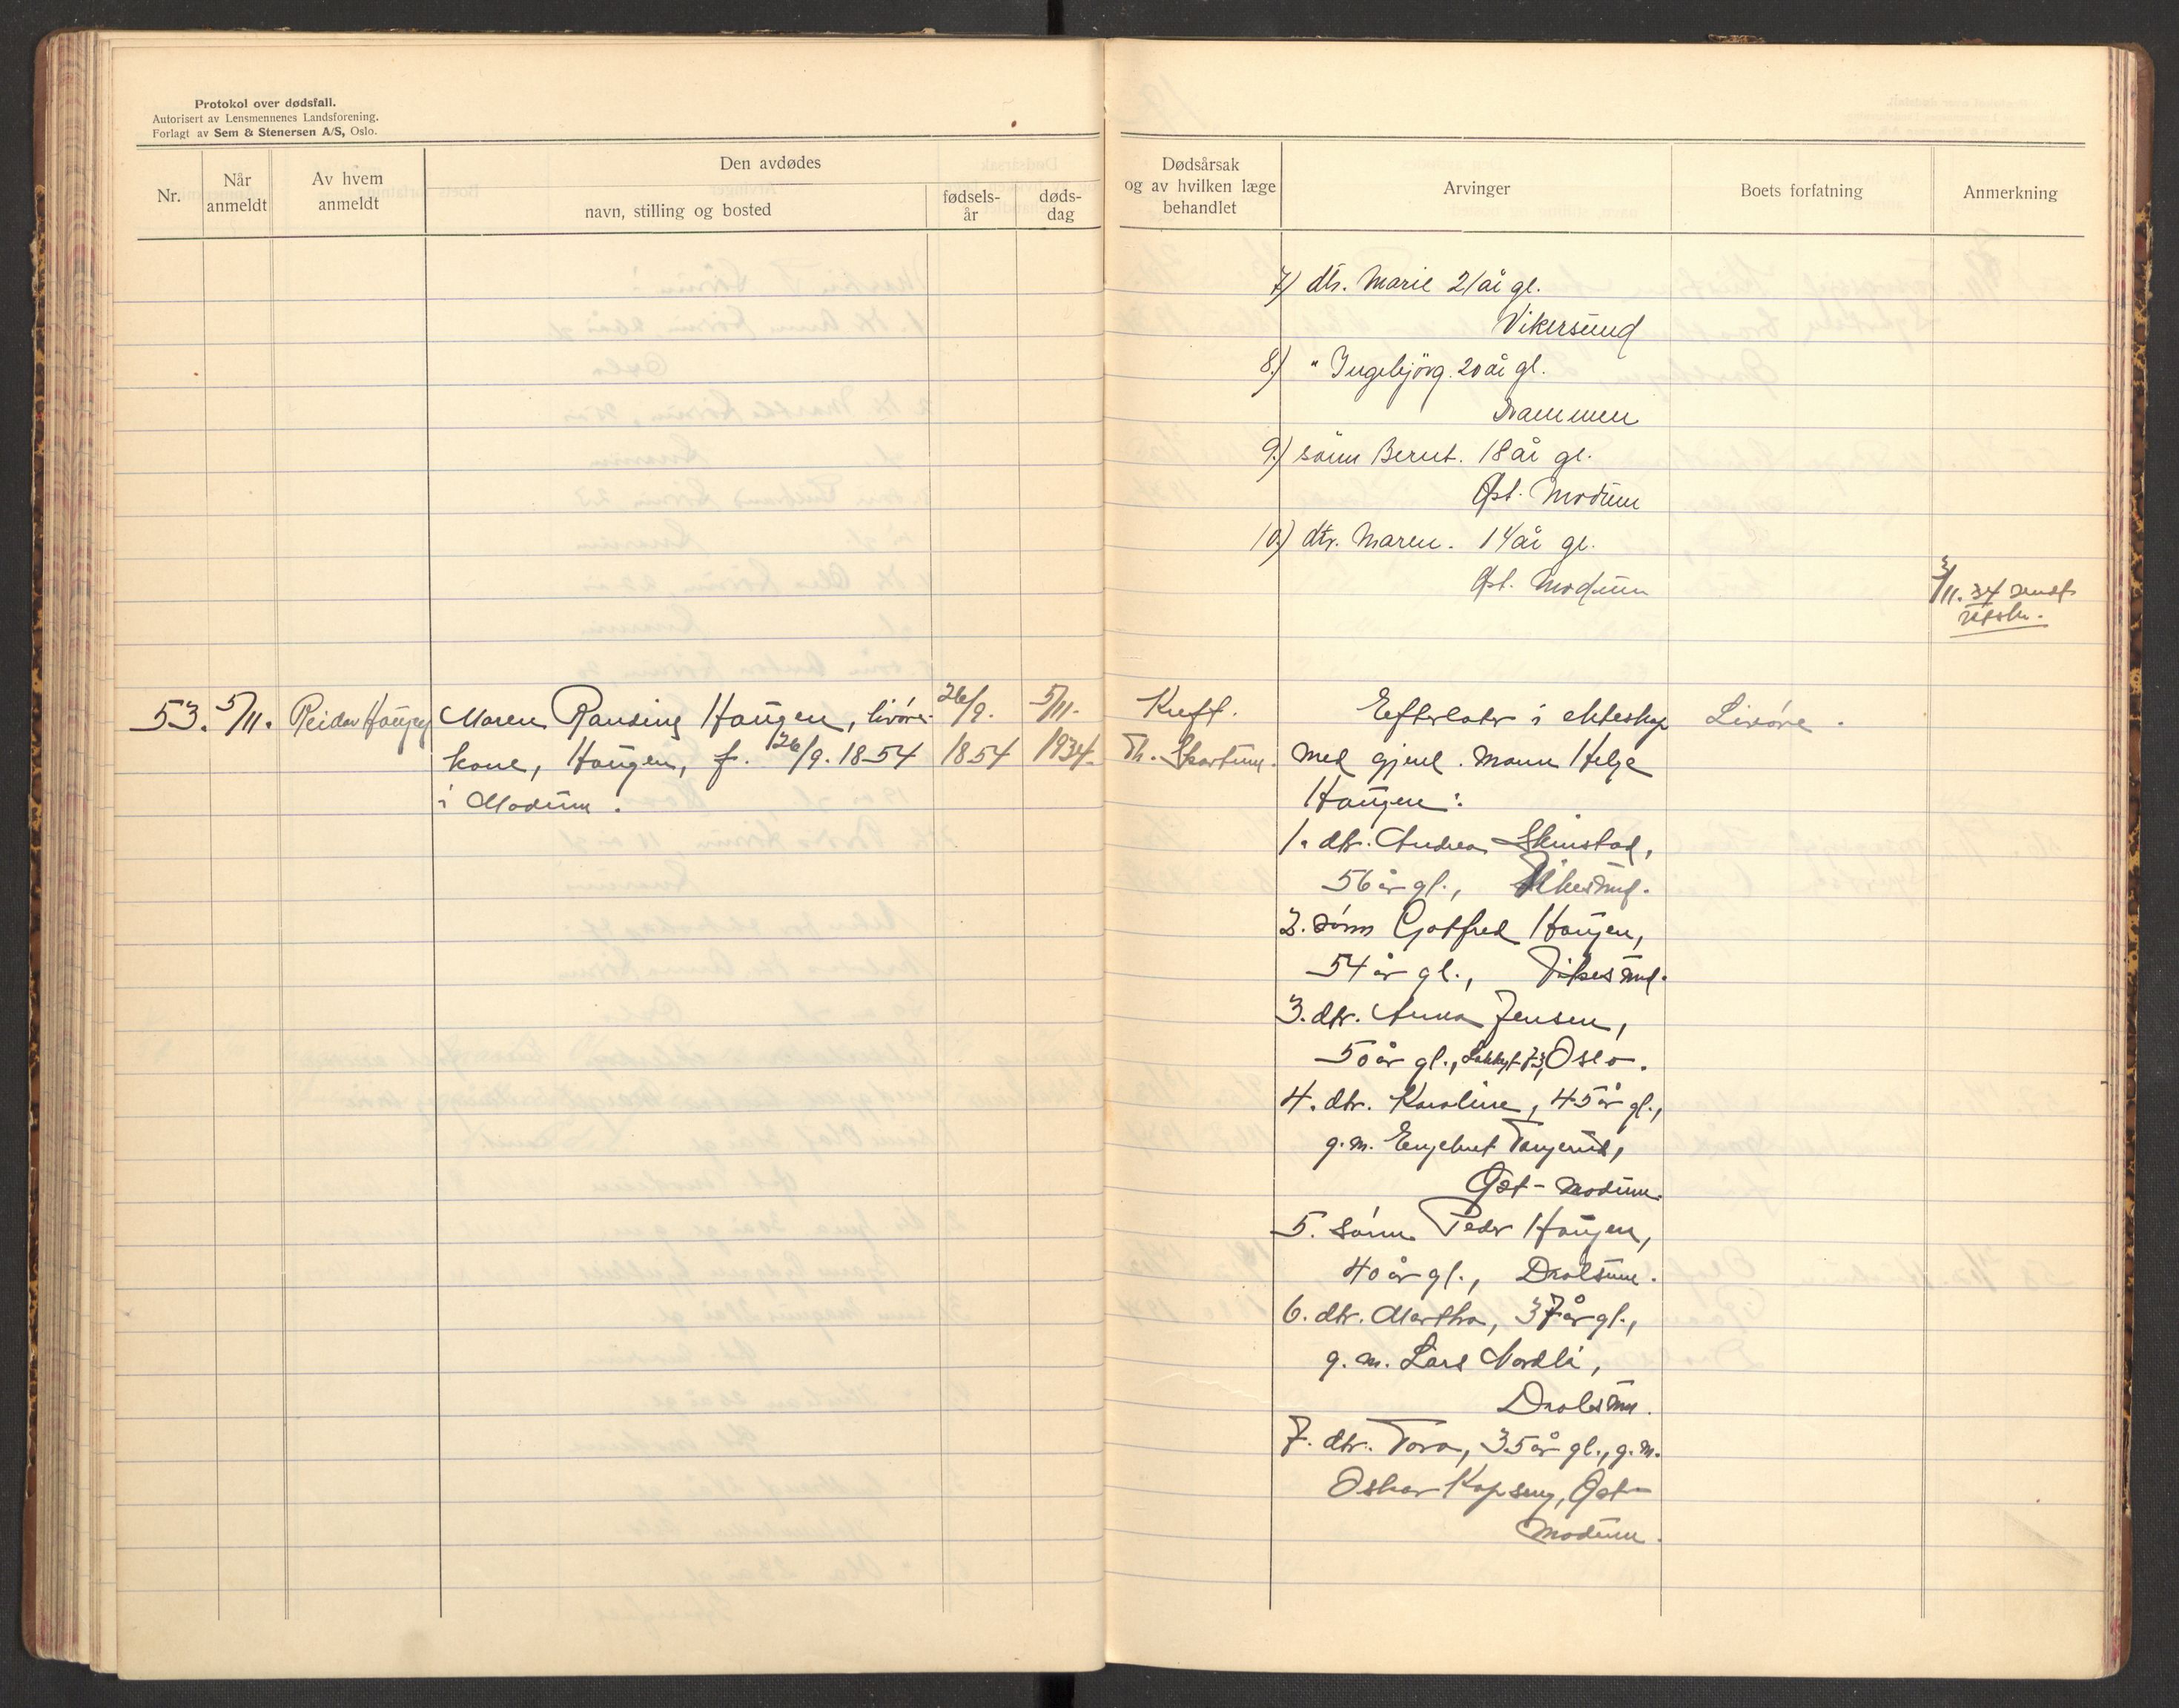 Protokol over dødsfall.
Autorisert av Lensmennenes Landsforening.
Forlagt av Sem & Stenersen A/S, Oslo.
Nr.
Når anmeldt
Av hvem anmeldt
Den avdødes
navn, stilling og bosted
fødsels-år
døds-dag
Dødsårsak
og av hvilken læge
behandlet
Arvinger
Boets forfatning
Anmerkning
7) dtr. Marie 21 år gl.
Vikersund
8.) " Ingebjörg. 20 år gl.
Drammen
9.) sönn Bernt. 18 år gl.
Øst. Modum
10.) dtr. Maren. 14 år gl.
Øst. Modum
3/11. 34 sendt
53. 5/11. Reidar Haugen
Maren Randine Haugen, livöre-
kone, Haugen, f. 26/9. 1854
i Modum.
26/9.
1854
5/11.
1934.
Kreft.
Th. Skartum.
Efterlater i ekteskap
med gjenl. mann Helge
Haugen:
1. dtr. Andrea Skinstad,
56 år gl., Vikersund.
2. sönn Gotfred Haugen,
54 år gl., Vikersund.
3. dtr. Anna Jensen,
50 år gl., Oslo.
4. dtr. Karoline, 45 år gl.,
g.m. Engebret Tangerud,
Øst-Modum.
5. sönn Peder Haugen,
40 år gl., Drolsum.
6. dtr. Martha, 37 år gl.,
g.m. Lars Nordli,
Drolsum.
7. dtr. Tora, 35 år gl., g.m.
Oskar Kopseng, Øst-
Modum.
Livöre.